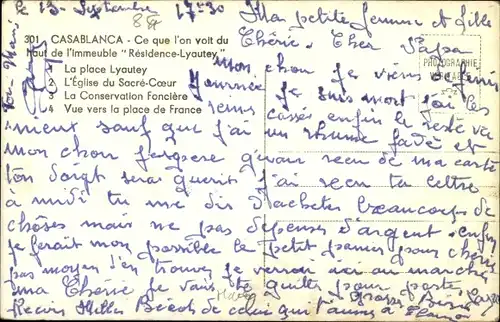 le 13 - Septembre 17-30
Ma petite femme et fille
Chérie. Cher Papa
301 CASABLANCA - Ce que l'on voit du
Haut de l'Immeuble "Résidence-Lyautey"
1 La place Lyautey
2 L'Église du Sacré-Cœur
3 La Conservation Foncière
4 Vue vers la place de France
PHOTOGRAPHIE
VÉRITABLE
Mon chou je viens de finir
journée je suis mort j'ai les
reins cassés enfin le reste va
sauf que j'ai un rhume
mon chou j'espère qu'avec de ma carte
ton doigt sera guérit j'ai reçu ta lettre
à midi tu me dis d'acheter beaucoup de
chôses mais ne pas dépenser d'argent enfin
je ferait mon possible le petit panier pour chérie
pas moyen d'en trouver je verrai au marché
ma Chérie je vais te quitter pour
Grosses Bises
Reçois Milles de celui qui t'aime